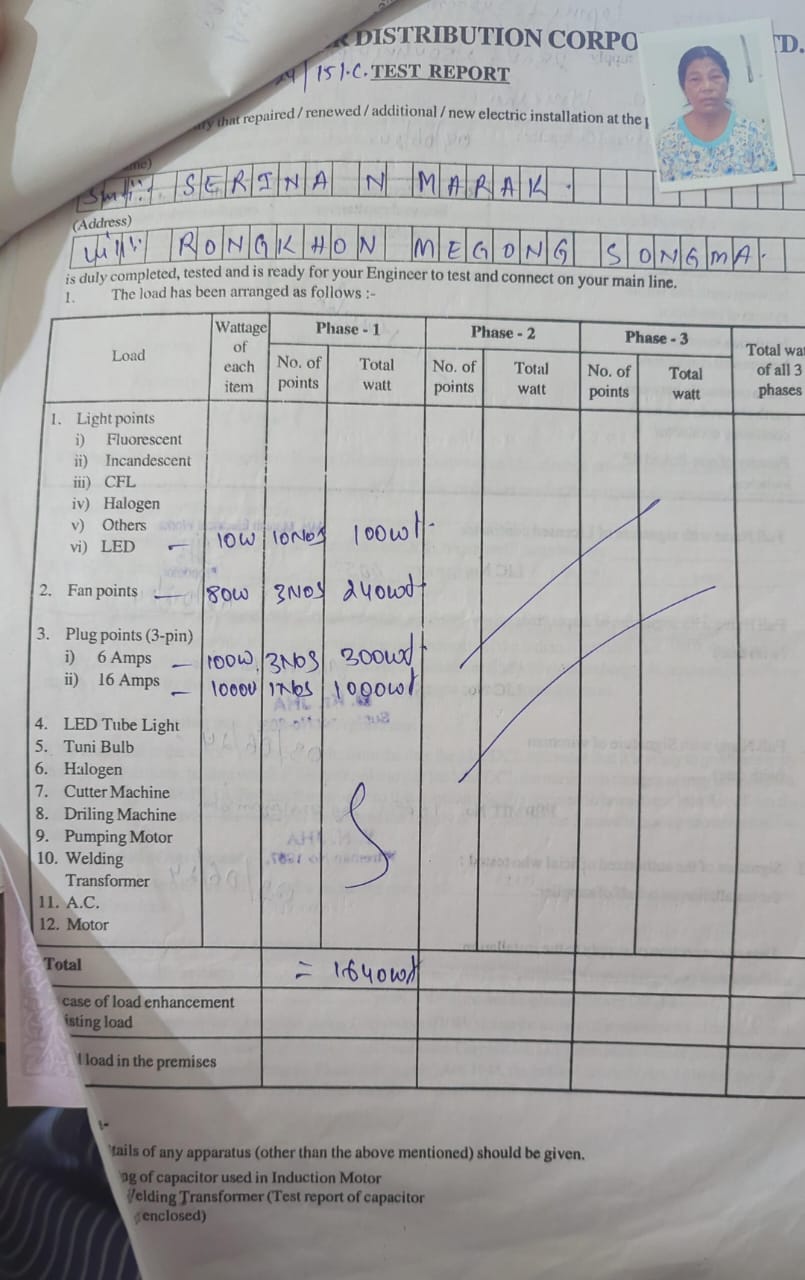 DISTRIBUTION CORPO TD.
/15 I.C. TEST REPORT
that repaired / renewed / additional / new electric installation at the
Smti: SERINA N MARAK.
(Address)
Vill: RONGKHON MEGONG SONGMA.
is duly completed, tested and is ready for your Engineer to test and connect on your main line.
1. The load has been arranged as follows :-
Load Wattage of each item Phase - 1 Phase - 2 Phase - 3 Total wat of all 3 phases
No. of points Total watt No. of points Total watt No. of points Total watt
1. Light points
i) Fluorescent
ii) Incandescent
iii) CFL
iv) Halogen
v) Others
vi) LED – 10W 10NOS 100wt
2. Fan points — 80W 3NOS 240wt
3. Plug points (3-pin)
i) 6 Amps – 100W 3NOS 300wt
ii) 16 Amps – 1000W 1NOS 1000wt
4. LED Tube Light
5. Tuni Bulb
6. Halogen
7. Cutter Machine
8. Driling Machine
9. Pumping Motor
10. Welding
Transformer
11. A.C.
12. Motor
Total = 1640wt
case of load enhancement
isting load
load in the premises
:-
tails of any apparatus (other than the above mentioned) should be given.
ng of capacitor used in Induction Motor
Welding Transformer (Test report of capacitor
enclosed)